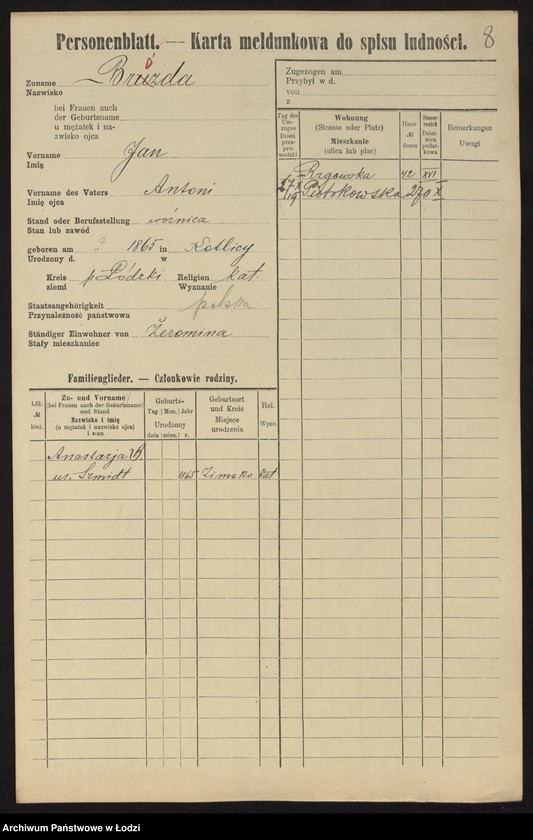 8
Personenblatt. — Karta meldunkowa do spisu ludności.
Zuname
Nazwisko
Bruzda
ó
bei Frauen auch
der Geburtsname
u mężatek i na-
zwisko ojca
Vorname
Imię
Jan
Vorname des Vaters
Imię ojca
Antoni
Stand oder Berufsstellung
Stan lub zawód
woźnica
geboren am ? 1865 in Kotlicy
Urodzony d. w
Kreis
ziemi
p Łódzki
Religion
Wyznanie
kat.
Staatsangehörigkeit
Przynależność państwowa
polska
Ständiger Einwohner von
Stały mieszkaniec
Żeromina
Familienglieder. — Członkowie rodziny.
Lfd. №
bież.
Zu- und Vorname
(bei Frauen auch der Geburtsname)
und Stand
Nazwisko i imię
(u mężatek i nazwisko ojca)
i stan
Geburts-
Tag | Mon. | Jahr
Urodzony
dnia | mies. | r.
Geburtsort
und Kreis
Miejsce
urodzenia
Rel.
Wyzn.
Anastazja
ur. Szmidt 1865 kat
Zugezogen am
Przybył w d.
von
z
Tag des
Um-
zuges
Dzień
prze-
pro-
wadzki
Wohnung
(Strasse oder Platz)
Mieszkanie
(ulica lub plac)
Haus
№
domu
Steuer-
bezirk
Dziel-
nica
podat-
kowa
Bemerkungen
Uwagi
Rzgowska 42 XVI
27/X 19 Piotrkowska 270 X
Archiwum Państwowe w Łodzi